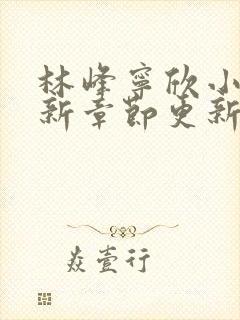 林峰寧欣小
新章節更新
焱壹行